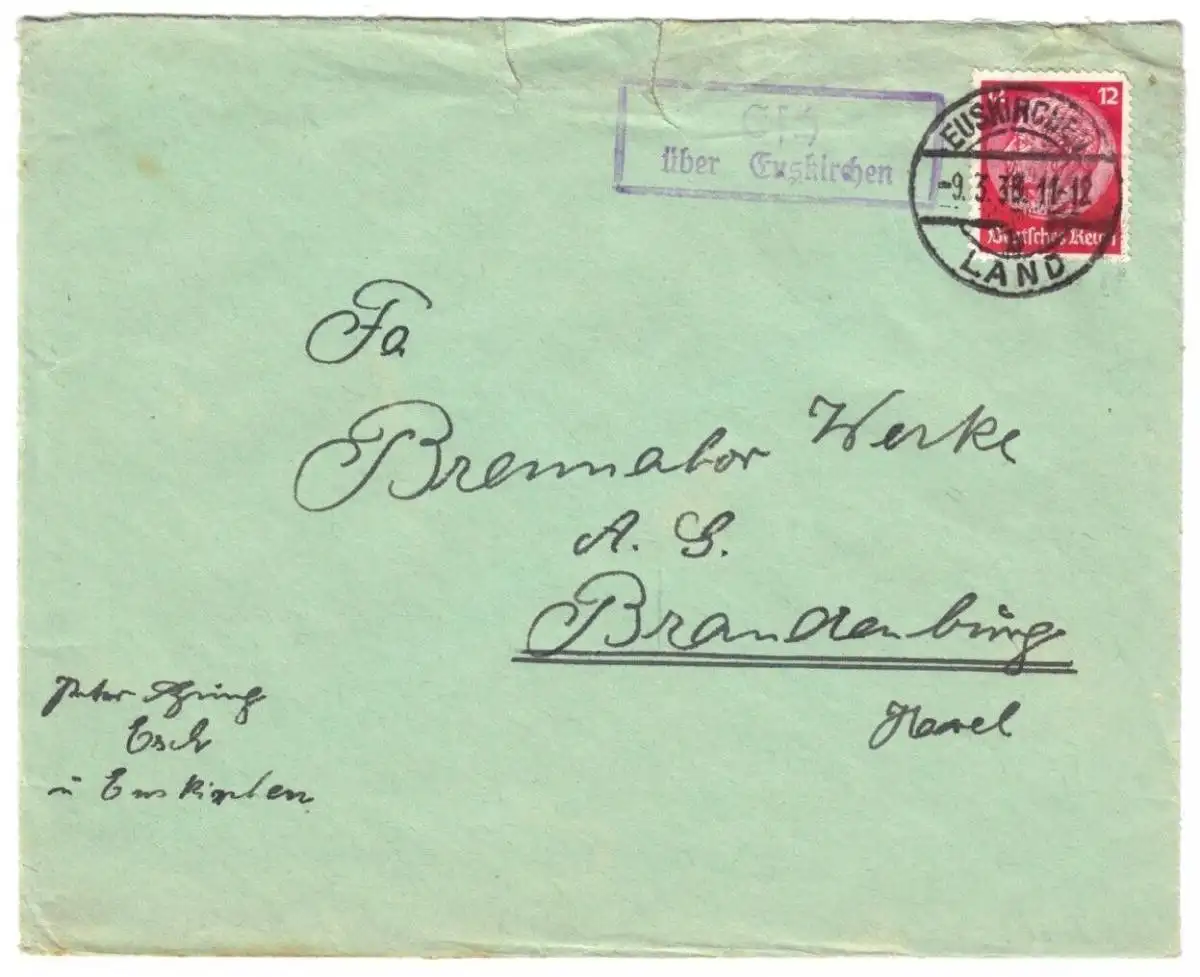 Esch
über Euskirchen
12
EUSKIRCHEN
-9.3.38.11-12
LAND
Deutsches Reich
Fa
Brennabor Werke
A. G.
Brandenburg
Havel
Peter
Esch
ü Euskirchen